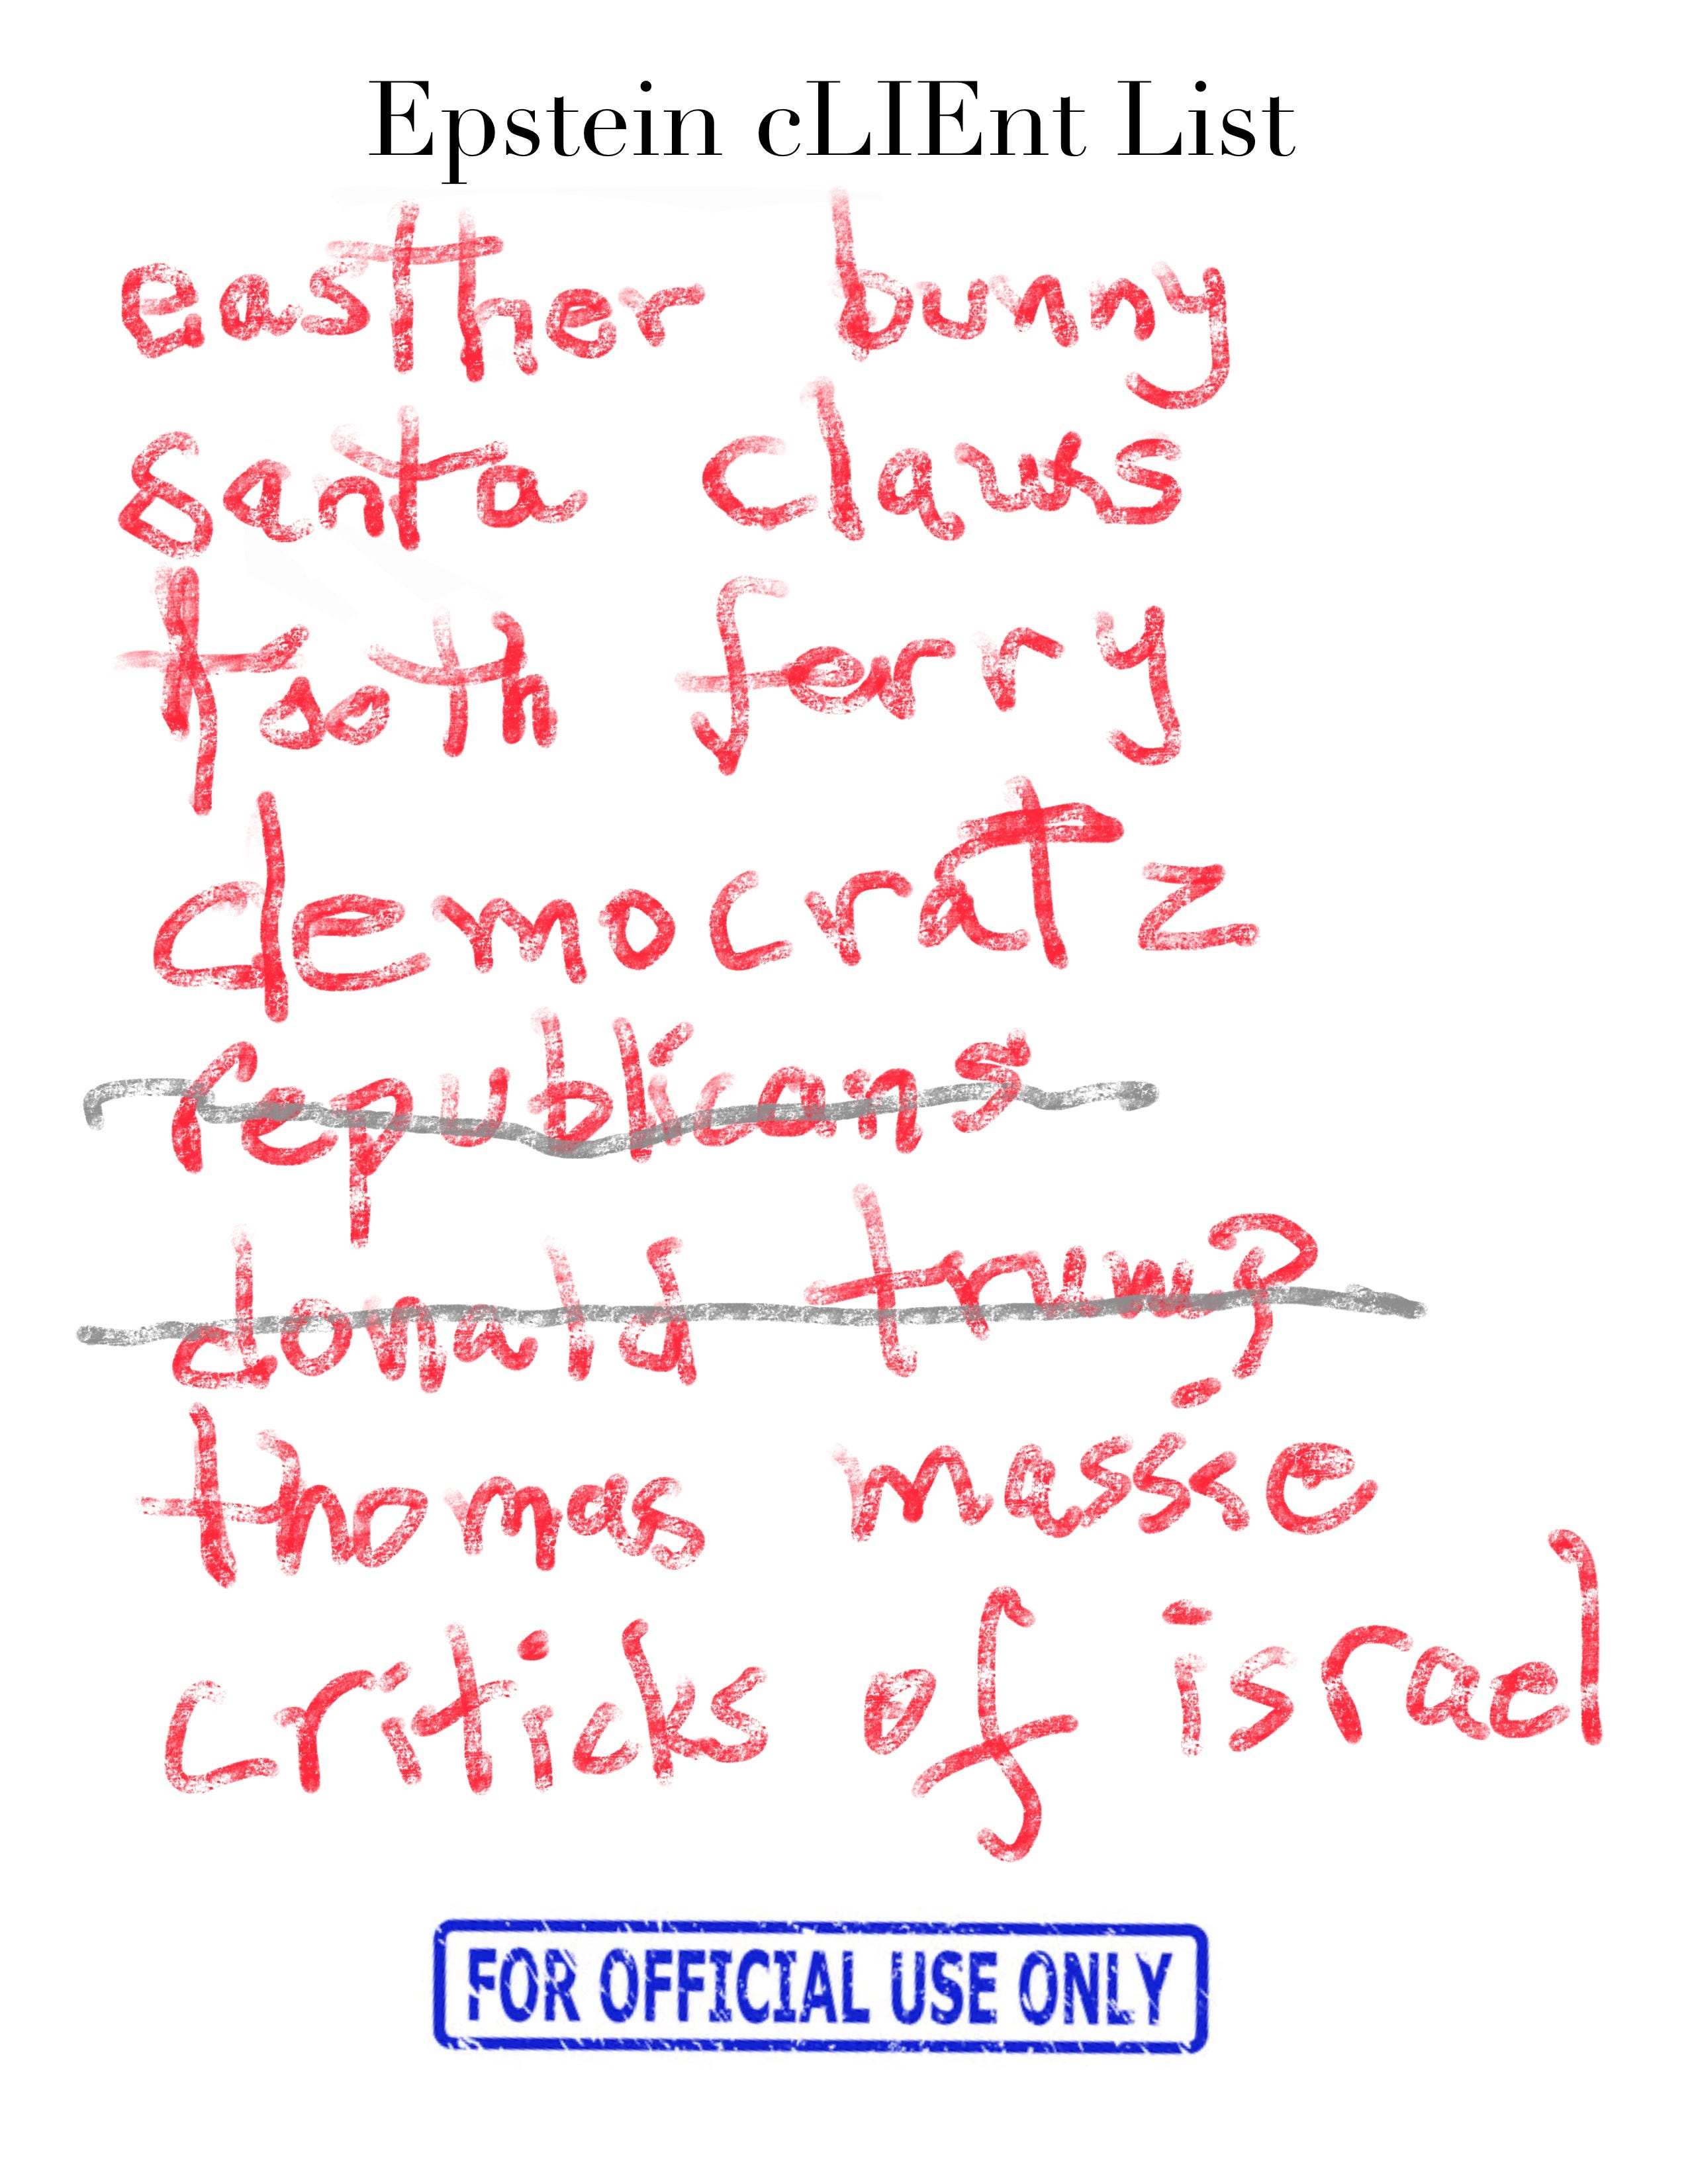 Epstein cLIEnt List
easther bunny
santa claws
tooth ferry
democratz
republicans
donald trump
thomas massie
criticks of israel
FOR OFFICIAL USE ONLY